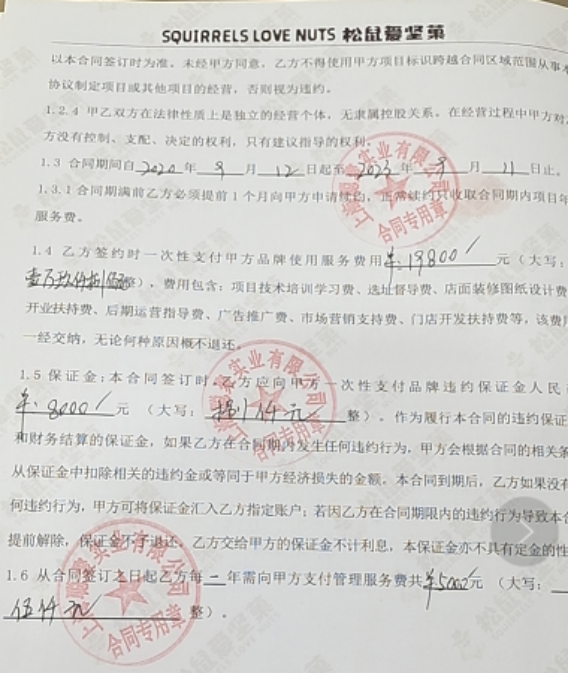 SQUIRRELS LOVE NUTS 松鼠爱坚果
以本合同签订时为准。未经甲方同意，乙方不得使用甲方项目标识跨越合同区域范围从事
协议制定项目或其他项目的经营，否则视为违约。
1.2.4 甲乙双方在法律性质上是独立的经营个体，无隶属控股关系。在经营过程中甲方对
方没有控制、支配、决定的权利，只有建议指导的权利
1.3 合同期间自2020年9月12日起至2023年9月11日止。
1.3.1 合同期满前乙方必须提前1个月向甲方申请续约，正常续约只收取合同期内项目年
服务费。
1.4 乙方签约时一次性支付甲方品牌使用服务费用¥:19800元（大写：
壹万玖仟捌佰整），费用包含：项目技术培训学习费、选址督导费、店面装修图纸设计费
开业扶持费、后期运营指导费、广告推广费、市场营销支持费、门店开发扶持费等，该费
一经交纳，无论何种原因概不退还。
1.5 保证金：本合同签订时，乙方应向甲方一次性支付品牌违约保证金人民
¥:8000元（大写：捌仟元整）。作为履行本合同的违约保证
和财务结算的保证金，如果乙方在合同期内发生任何违约行为，甲方会根据合同的相关条
从保证金中扣除相关的违约金或等同于甲方经济损失的金额。本合同到期后，乙方如果没有
何违约行为，甲方可将保证金汇入乙方指定账户；若因乙方在合同期限内的违约行为导致本合
提前解除，保证金不予退还。乙方交给甲方的保证金不计利息，本保证金亦不具有定金的性
1.6 从合同签订之日起乙方每一年需向甲方支付管理服务费共¥5000元（大写：
伍仟元整）。
合同专用章
合同专用章
合同专用章